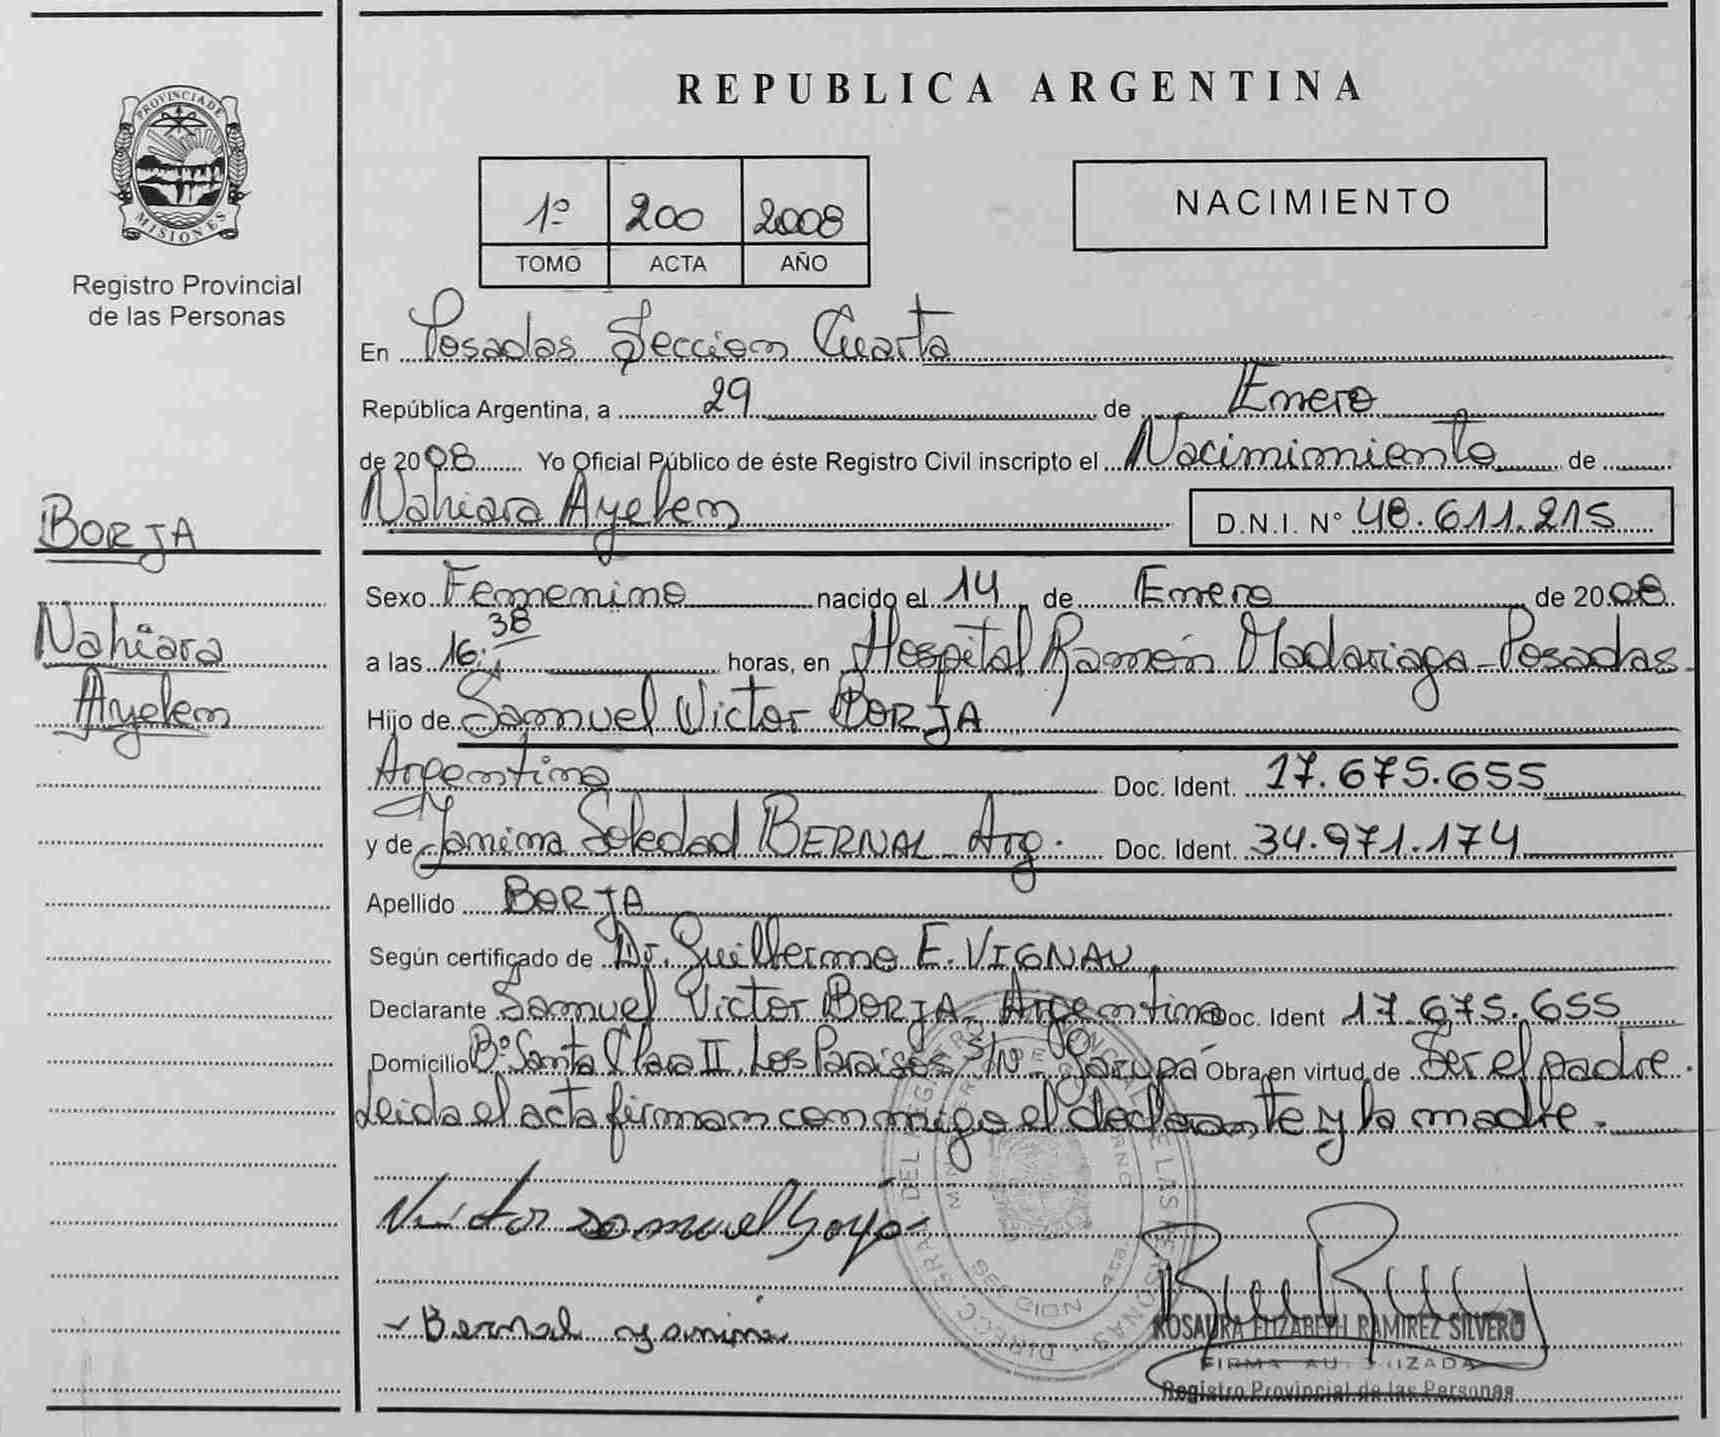 PROVINCIA DE
MISIONES
Registro Provincial
de las Personas
BORJA
Nahiara
Ayelen
REPUBLICA ARGENTINA
1º 200 2008
TOMO ACTA AÑO
NACIMIENTO
En Posadas Seccion Cuarta
República Argentina, a 29 de Enero
de 2008 Yo Oficial Público de éste Registro Civil inscripto el Nacimimiento de
Nahiara Ayelen D.N.I. N° 48.611.215
Sexo Femenino nacido el 14 de Enero de 2008
a las 16:38 horas, en Hospital Ramón Madariaga - Posadas -
Hijo de Samuel Victor BORJA
Argentino Doc. Ident. 17.675.655
y de Yanina Soledad BERNAL - Arg. Doc. Ident. 34.971.174
Apellido BORJA
Según certificado de Dr. Guillermo E. VIGNAU
Declarante Samuel Victor BORJA - Argentino Doc. Ident 17.675.655
Domicilio Bº Santa Clara II. Los Paraisos S/N - Garupá Obra en virtud de Ser el padre.
Leida el acta firman conmigo el declarante y la madre.
Victor Samuel
Bernal yanina
ROSAURA ELIZABETH RAMIREZ SILVERO
FIRMA AUTORIZADA
Registro Provincial de las Personas